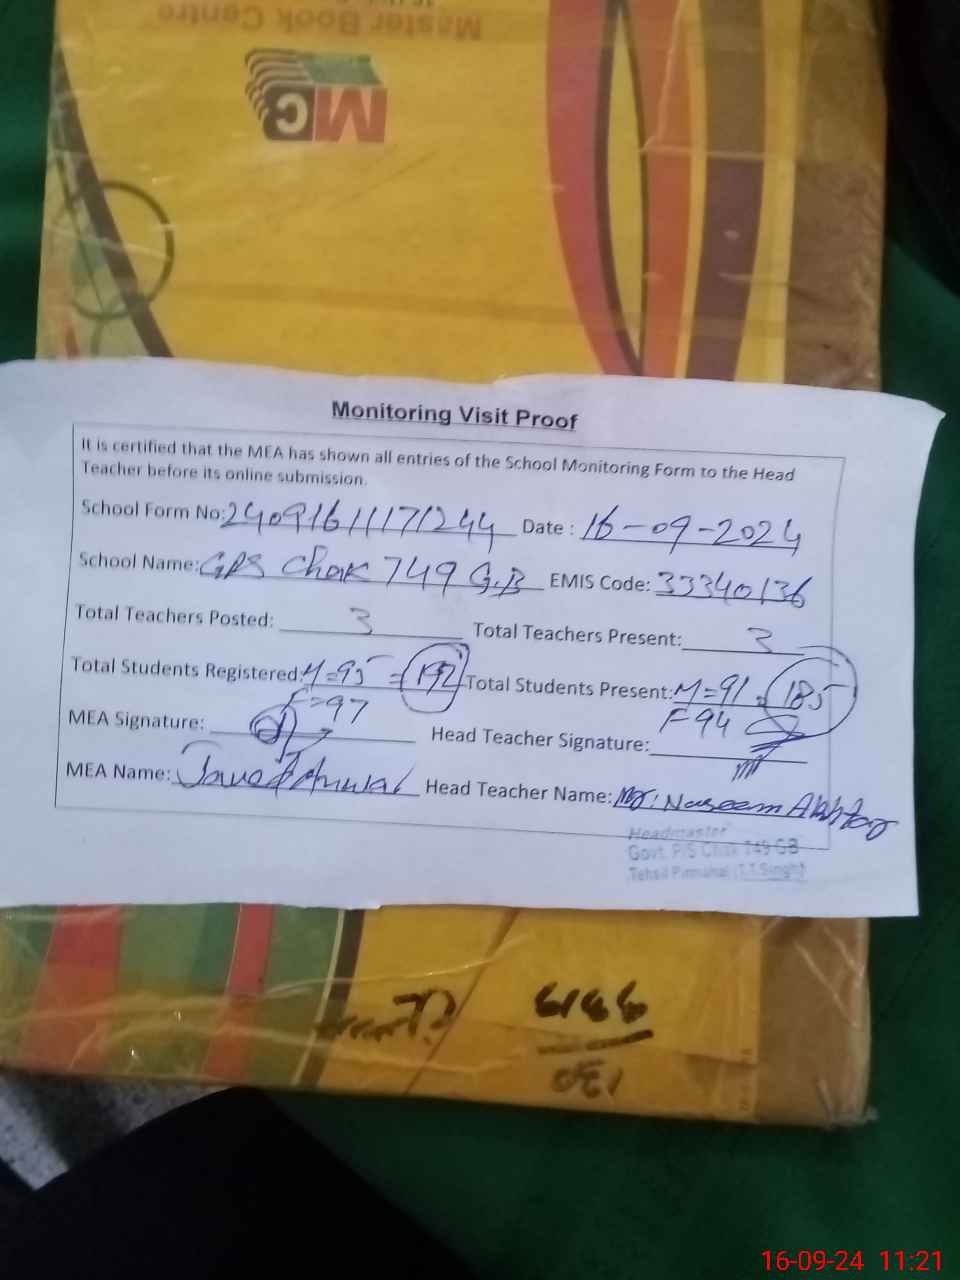 Master Book Centre
MC
Monitoring Visit Proof
It is certified that the MEA has shown all entries of the School Monitoring Form to the Head
Teacher before its online submission.
School Form No: 24091611171244 Date : 16-09-2024
School Name: GPS Chak 749 G.B EMIS Code: 33340136
Total Teachers Posted: 3 Total Teachers Present: 3
Total Students Registered: M=95 = 192 Total Students Present: M=91 = 185
F=97 F=94
MEA Signature: Head Teacher Signature:
MEA Name: Javed Anwar Head Teacher Name: Mr. Naseem Akhtar
Headmaster
Govt. P/S Chak 749 GB
Tehsil Pirmahal (T.T.Singh)
130
16-09-24 11:21